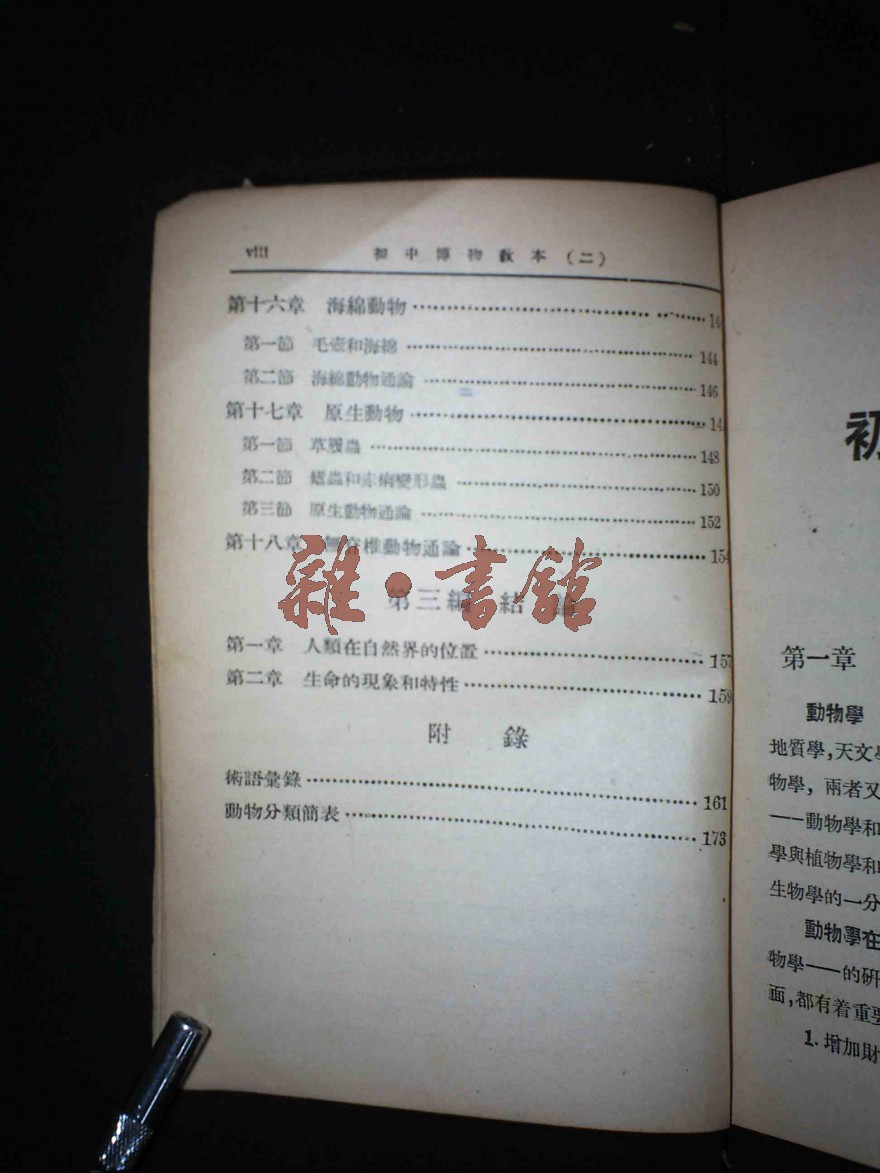 viii 初中博物教本(二)
第十六章 海綿動物 14
第一節 毛壺和海綿 144
第二節 海綿動物通論 146
第十七章 原生動物 14
第一節 草履蟲 148
第二節 瘧蟲和赤痢變形蟲 150
第三節 原生動物通論 152
第十八章 無脊椎動物通論 154
雜·書館
第三編 結論
第一章 人類在自然界的位置 157
第二章 生命的現象和特性 159
附錄
術語彙錄 161
動物分類簡表 173
初
第一章
動物學
地質學,天文學
物學, 兩者又
——動物學和
學與植物學和
生物學的一分
動物學在
物學——的研
面,都有着重要
1. 增加財